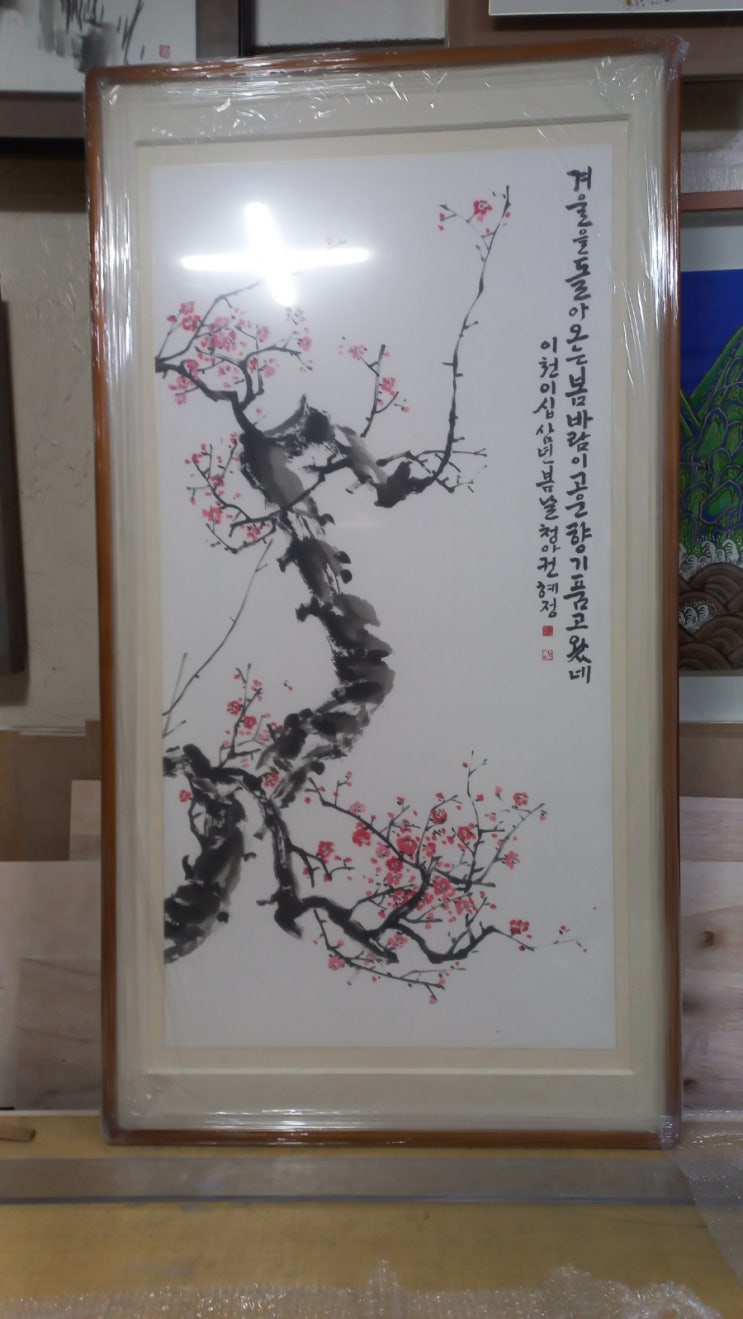 겨울을 돌아온 봄바람이 고운 향기 품고 왔네
이천이십삼년 봄날 청아 권혜정